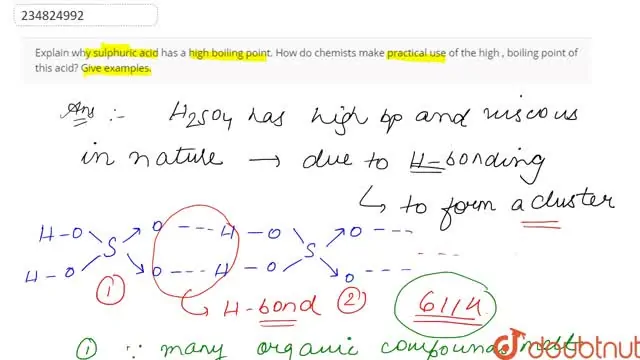 234824992
Explain why sulphuric acid has a high boiling point. How do chemists make practical use of the high , boiling point of
this acid? Give examples.
Ans :- H2SO4 has high bp and viscous
in nature → due to H-bonding
↳ to form a cluster
H-O O --- H-O O ---
S S
H-O O --- H-O O ---
① ②
↳ H-bond
611 K
① ∵ many organic compounds melt
doubtnut